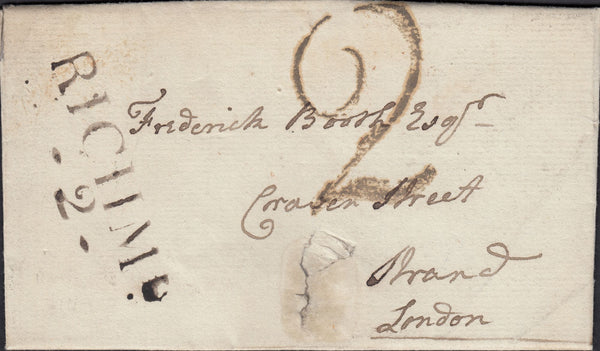 RICHMD.
- 2 -
2
Frederick Booth Esqr
Craven Street
Strand
London